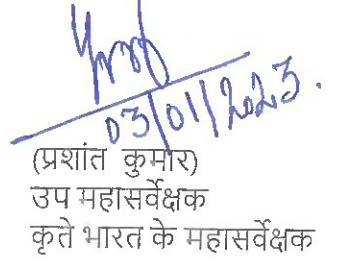 03/01/2023.
(प्रशांत कुमार)
उप महासर्वेक्षक
कृते भारत के महासर्वेक्षक